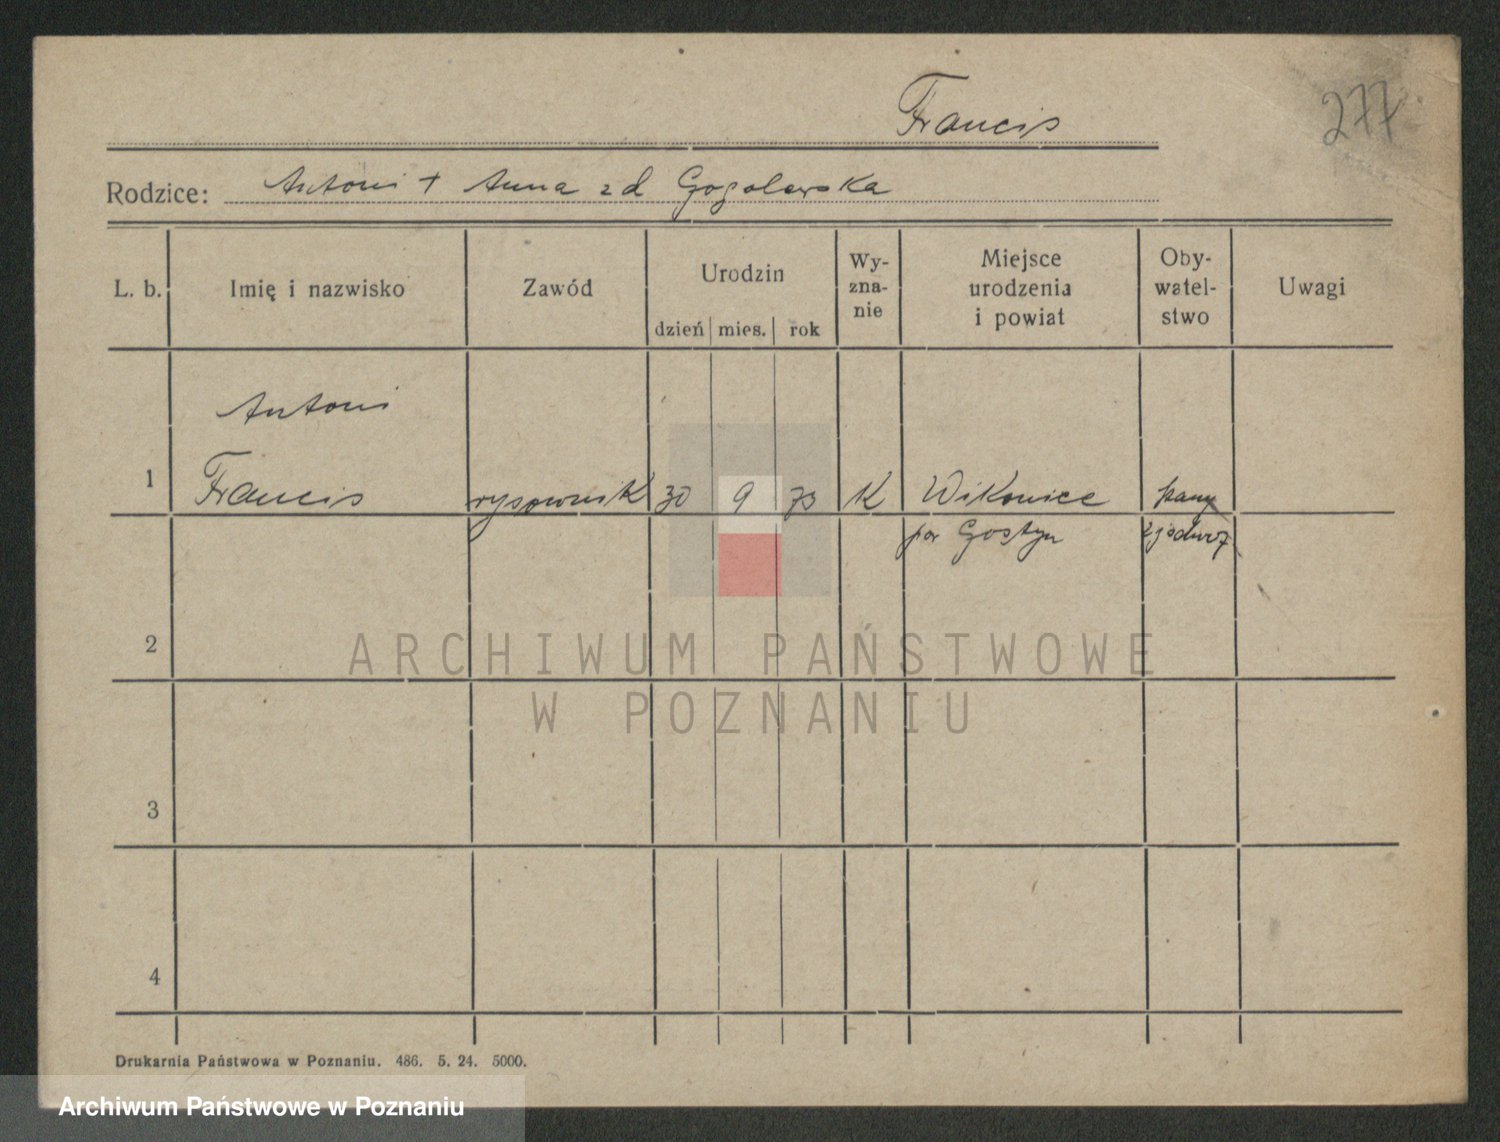 Francis
277
Rodzice: Antoni + Anna zd Gogolewska
L. b. Imię i nazwisko Zawód Urodzin dzień mies. rok Wy-zna-nie Miejsce urodzenia i powiat Oby-watel-stwo Uwagi
Antoni
1 Francis rysownik 30 9 73 K Wikonice
pow Gostyn
2
3
4
ARCHIWUM PAŃSTWOWE
W POZNANIU
Drukarnia Państwowa w Poznaniu. 486. 5. 24. 5000.
Archiwum Państwowe w Poznaniu